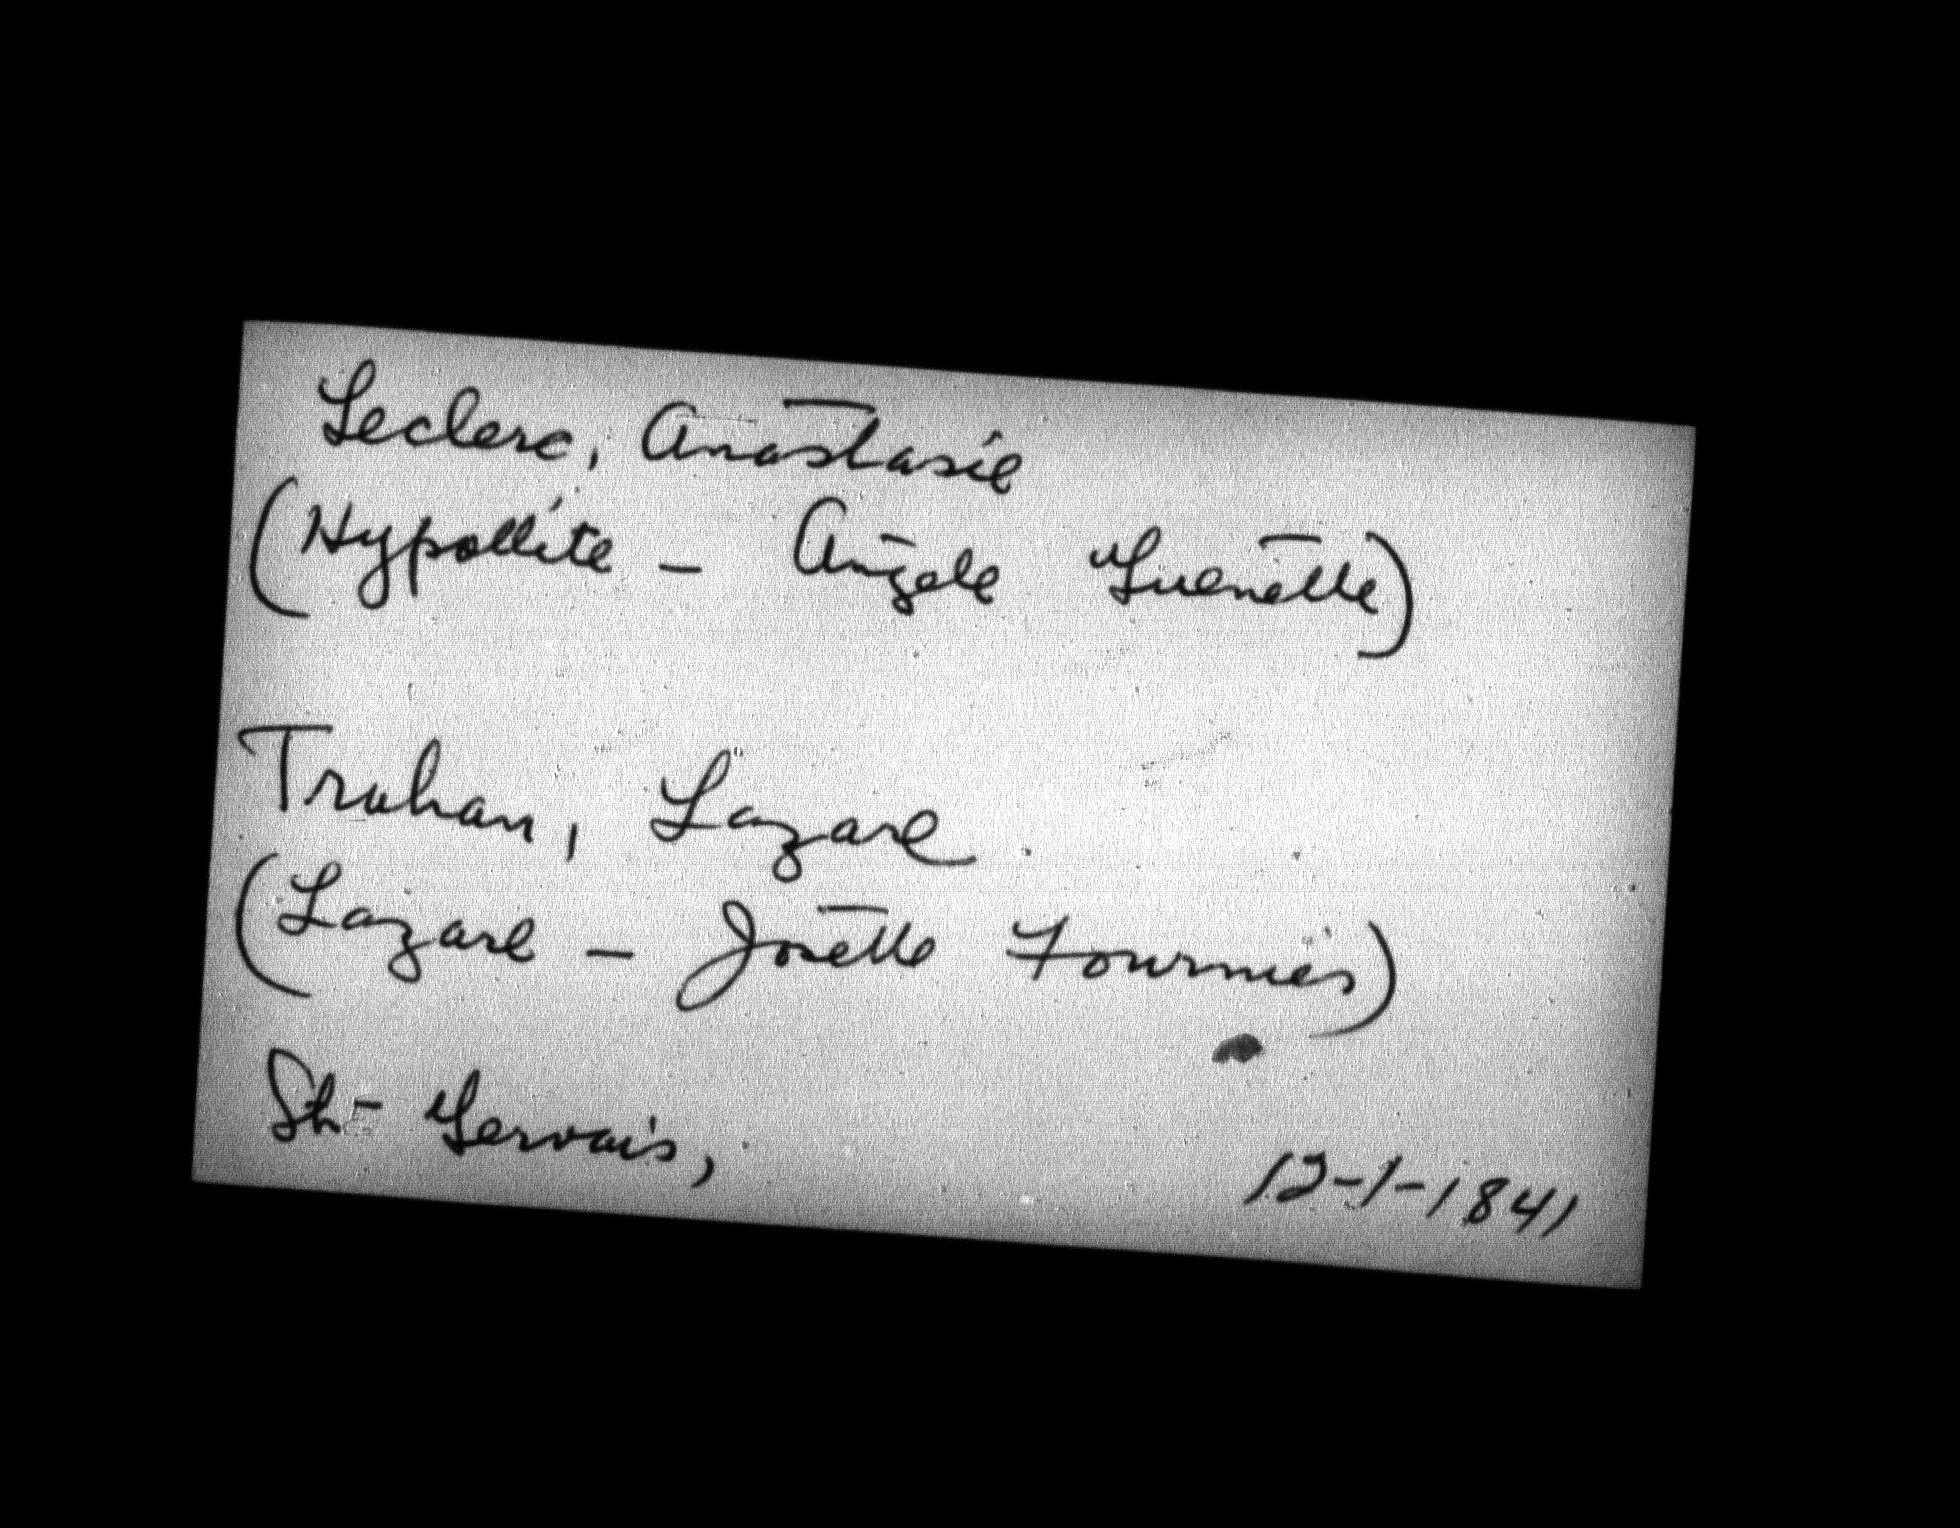 Leclerc, Anastasie
(Hypollite - Angele Guenette)
Truhan, Lazare
(Lazare - Josette Fournier)
St- Gervais,
12-1-1841